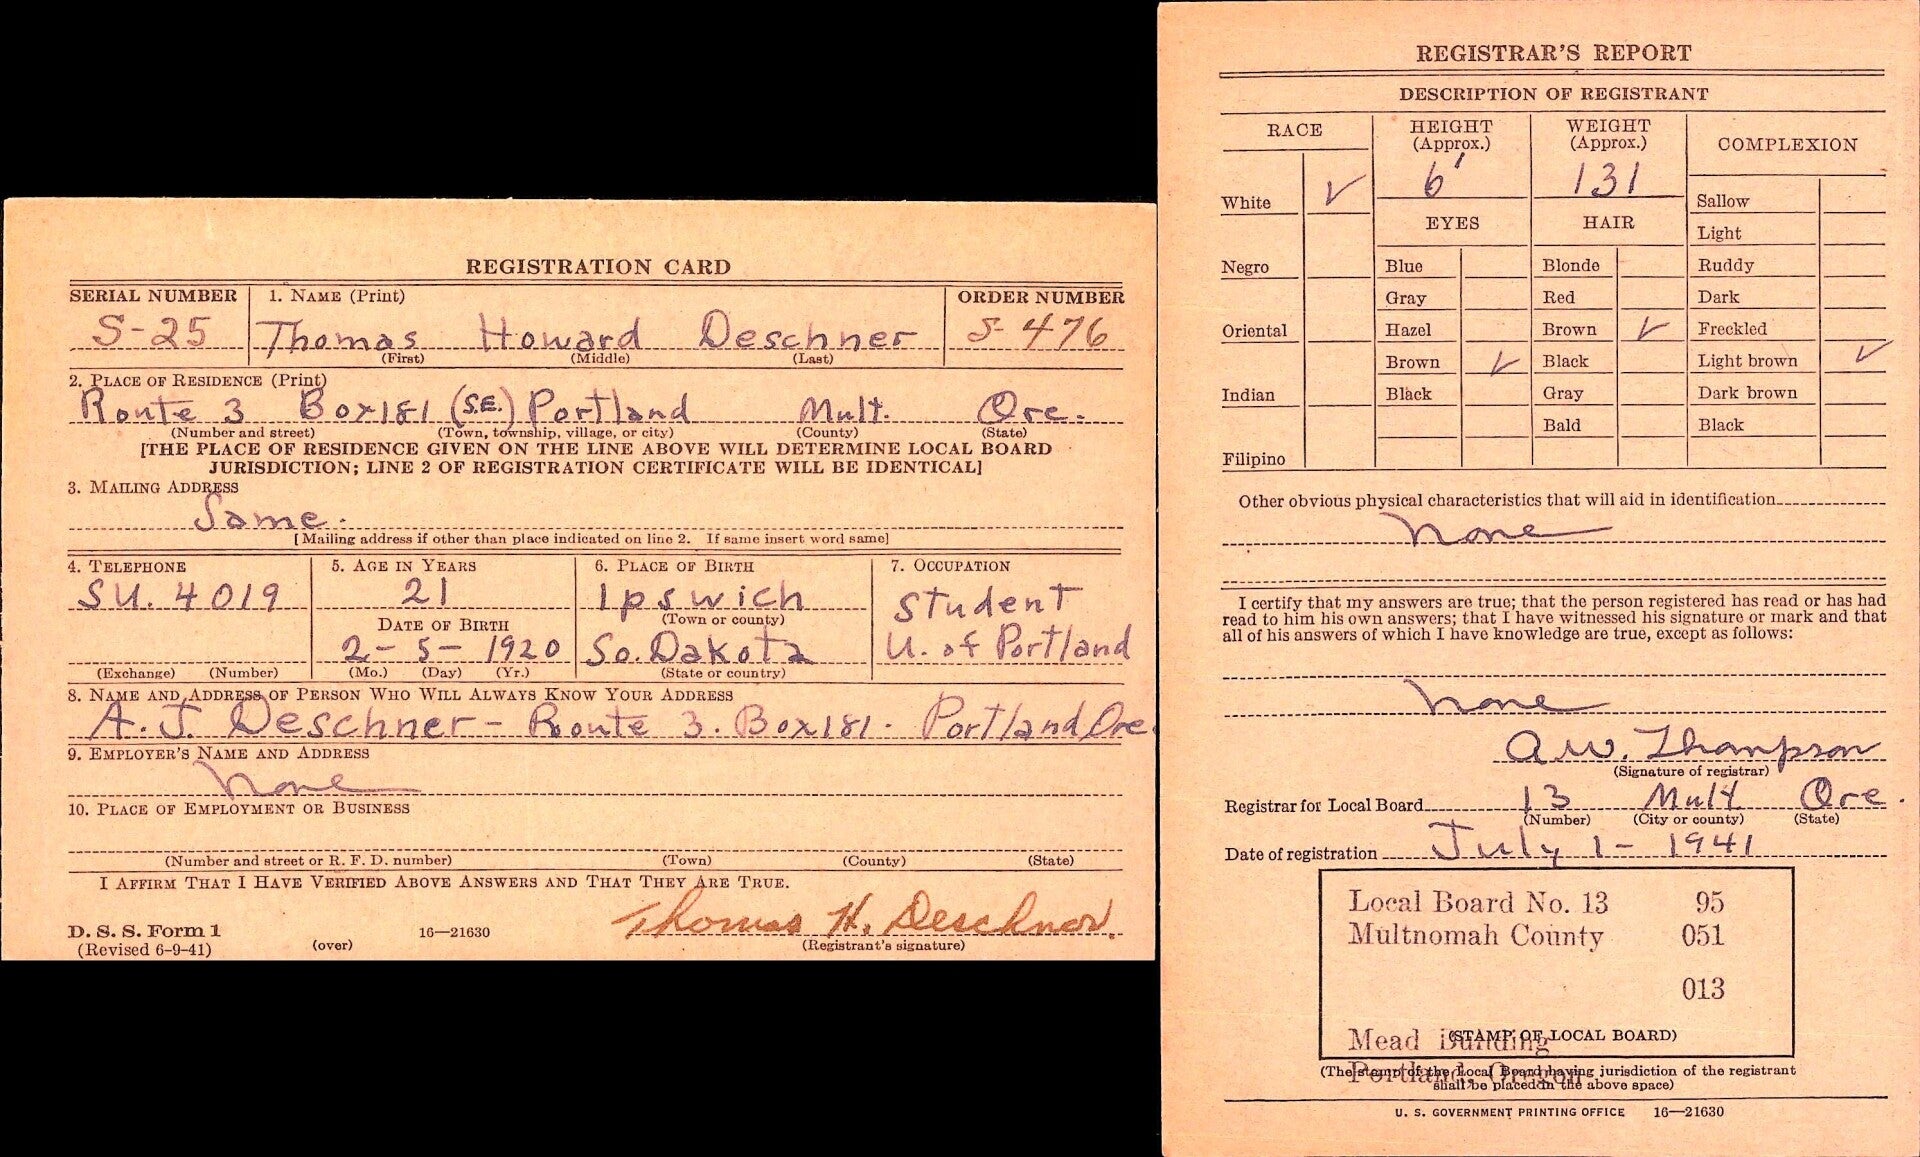 REGISTRATION CARD
SERIAL NUMBER 1. NAME (Print) ORDER NUMBER
S-25 Thomas Howard Deschner S-476
(First) (Middle) (Last)
2. PLACE OF RESIDENCE (Print)
Route 3 Box 181 (S.E.) Portland Mult. Ore.
(Number and street) (Town, township, village, or city) (County) (State)
[THE PLACE OF RESIDENCE GIVEN ON THE LINE ABOVE WILL DETERMINE LOCAL BOARD
JURISDICTION; LINE 2 OF REGISTRATION CERTIFICATE WILL BE IDENTICAL]
3. MAILING ADDRESS
Same.
[Mailing address if other than place indicated on line 2. If same insert word same]
4. TELEPHONE 5. AGE IN YEARS 6. PLACE OF BIRTH 7. OCCUPATION
SU. 4019 21 Ipswich Student
DATE OF BIRTH (Town or county)
2-5-1920 So. Dakota U. of Portland
(Exchange) (Number) (Mo.) (Day) (Yr.) (State or country)
8. NAME AND ADDRESS OF PERSON WHO WILL ALWAYS KNOW YOUR ADDRESS
A. J. Deschner - Route 3. Box 181. Portland, Ore.
9. EMPLOYER'S NAME AND ADDRESS
None
10. PLACE OF EMPLOYMENT OR BUSINESS
(Number and street or R. F. D. number) (Town) (County) (State)
I AFFIRM THAT I HAVE VERIFIED ABOVE ANSWERS AND THAT THEY ARE TRUE.
Thomas H. Deschner.
D. S. S. Form 1 16—21630 (Registrant's signature)
(Revised 6-9-41) (over)
REGISTRAR'S REPORT
DESCRIPTION OF REGISTRANT
RACE HEIGHT WEIGHT COMPLEXION
(Approx.) (Approx.)
6' 131
White ✓ Sallow
EYES HAIR Light
Negro Blue Blonde Ruddy
Gray Red Dark
Oriental Hazel Brown ✓ Freckled
Brown ✓ Black Light brown ✓
Indian Black Gray Dark brown
Bald Black
Filipino
Other obvious physical characteristics that will aid in identification
None
I certify that my answers are true; that the person registered has read or has had
read to him his own answers; that I have witnessed his signature or mark and that
all of his answers of which I have knowledge are true, except as follows:
None
A W. Thompson
(Signature of registrar)
Registrar for Local Board 13 Mult Ore.
(Number) (City or county) (State)
Date of registration July 1- 1941
Local Board No. 13 95
Multnomah County 051
013
Mead Building
(STAMP OF LOCAL BOARD)
Portland, Oregon
(The stamp of the Local Board having jurisdiction of the registrant
shall be placed in the above space)
U. S. GOVERNMENT PRINTING OFFICE 16—21630